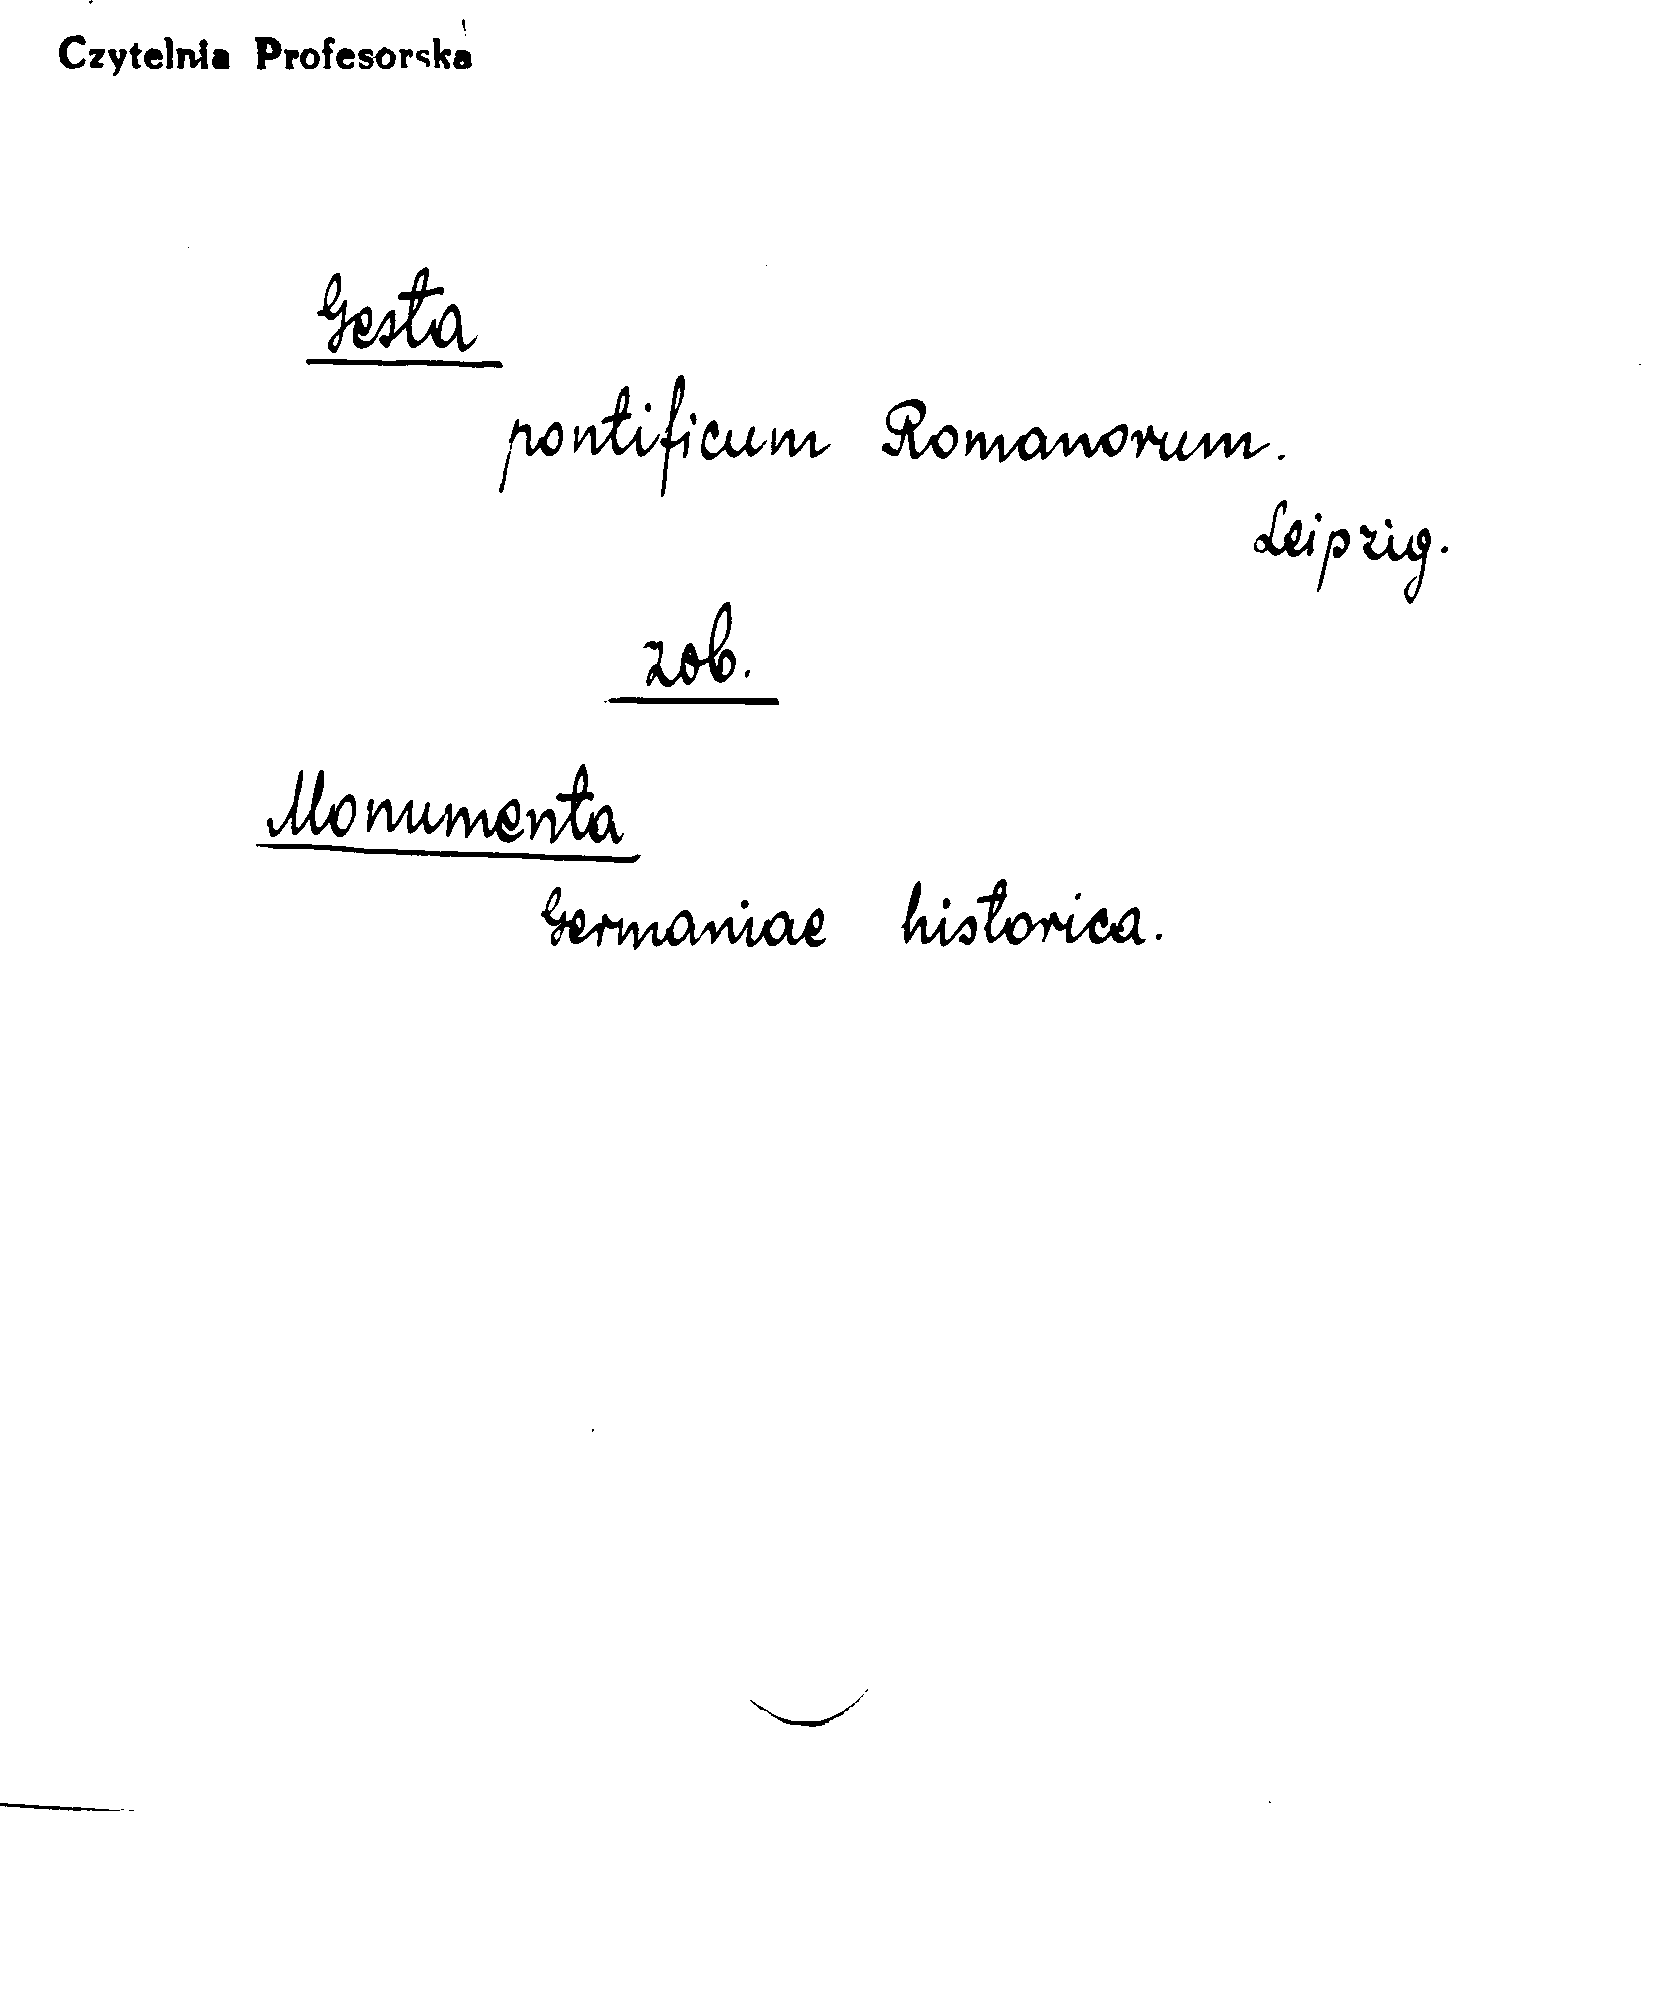 Czytelnia Profesorska
Gesta
pontificum Romanorum.
Leipzig.
zob.
Monumenta
Germaniae historica.